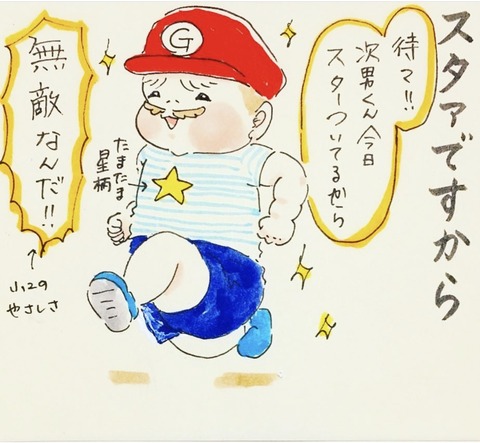 スタァですから
待て!!
次男くん今日
スターついてるから
G
たまたま
星柄
無敵なんだ!!
小2の
やさしさ